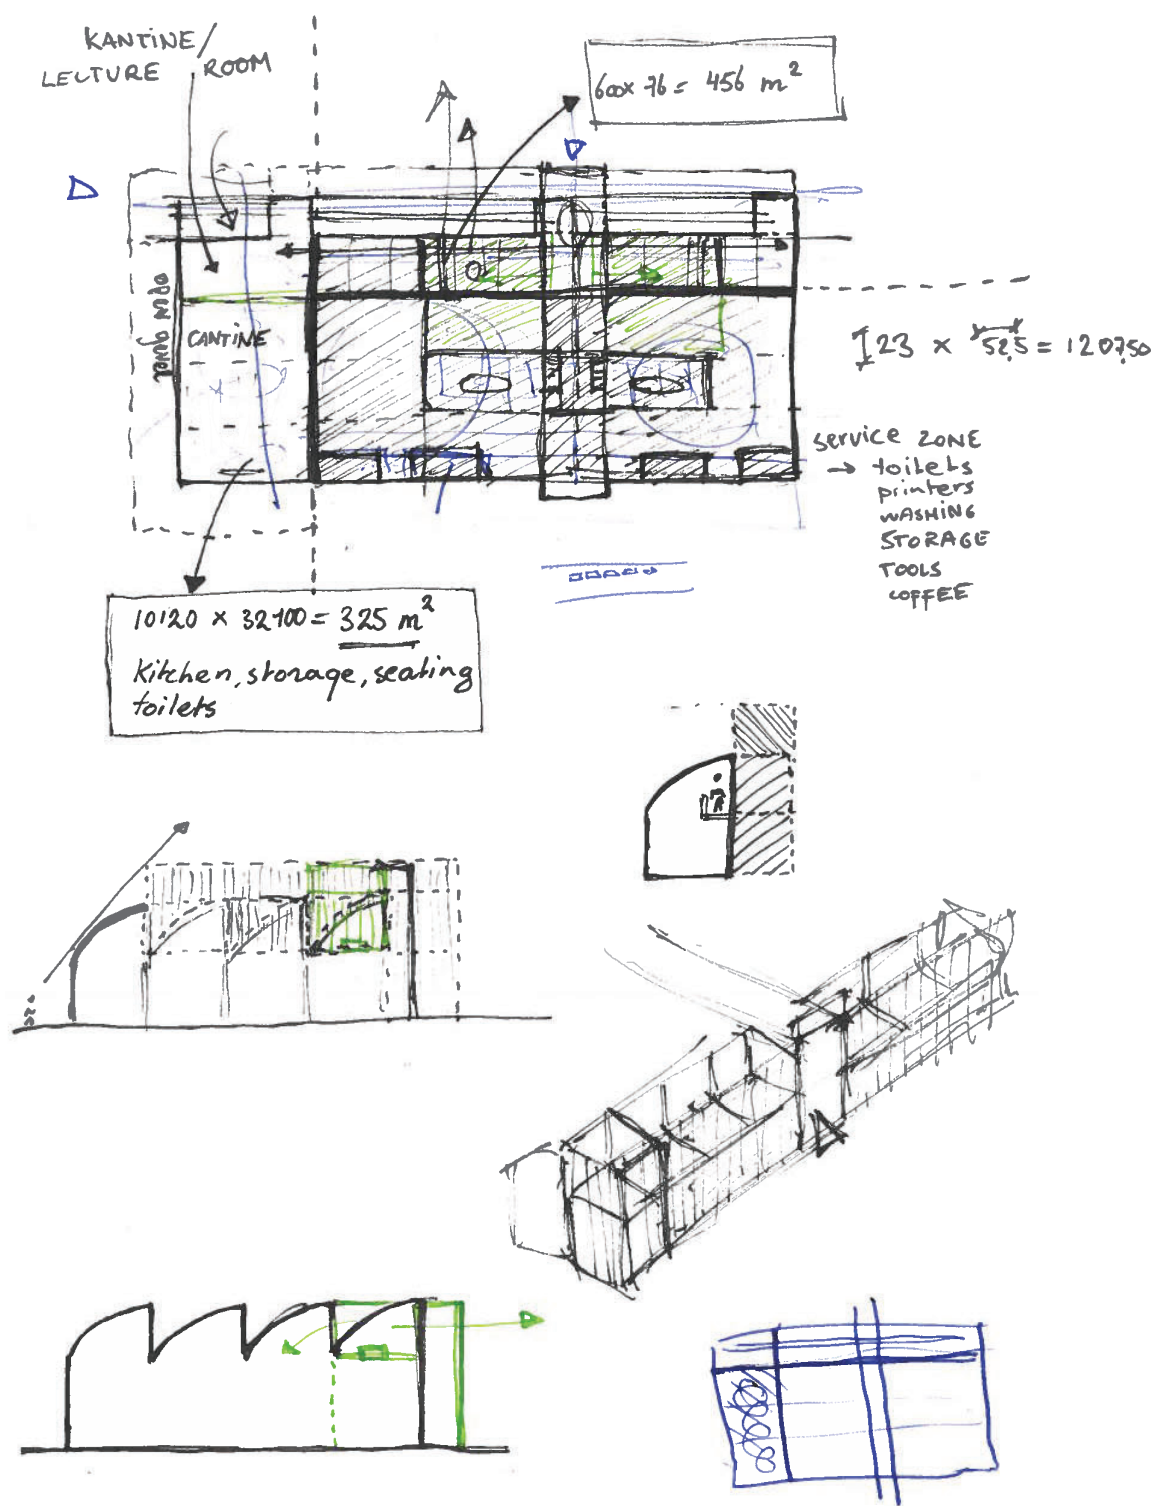 KANTINE/
LECTURE ROOM
600x 76 = 456 m²
CANTINE
23 x 52,5 = 1207,50
service ZONE
→ toilets
printers
WASHING
STORAGE
TOOLS
COFFEE
10120 x 32100 = 325 m²
Kitchen, storage, seating
toilets